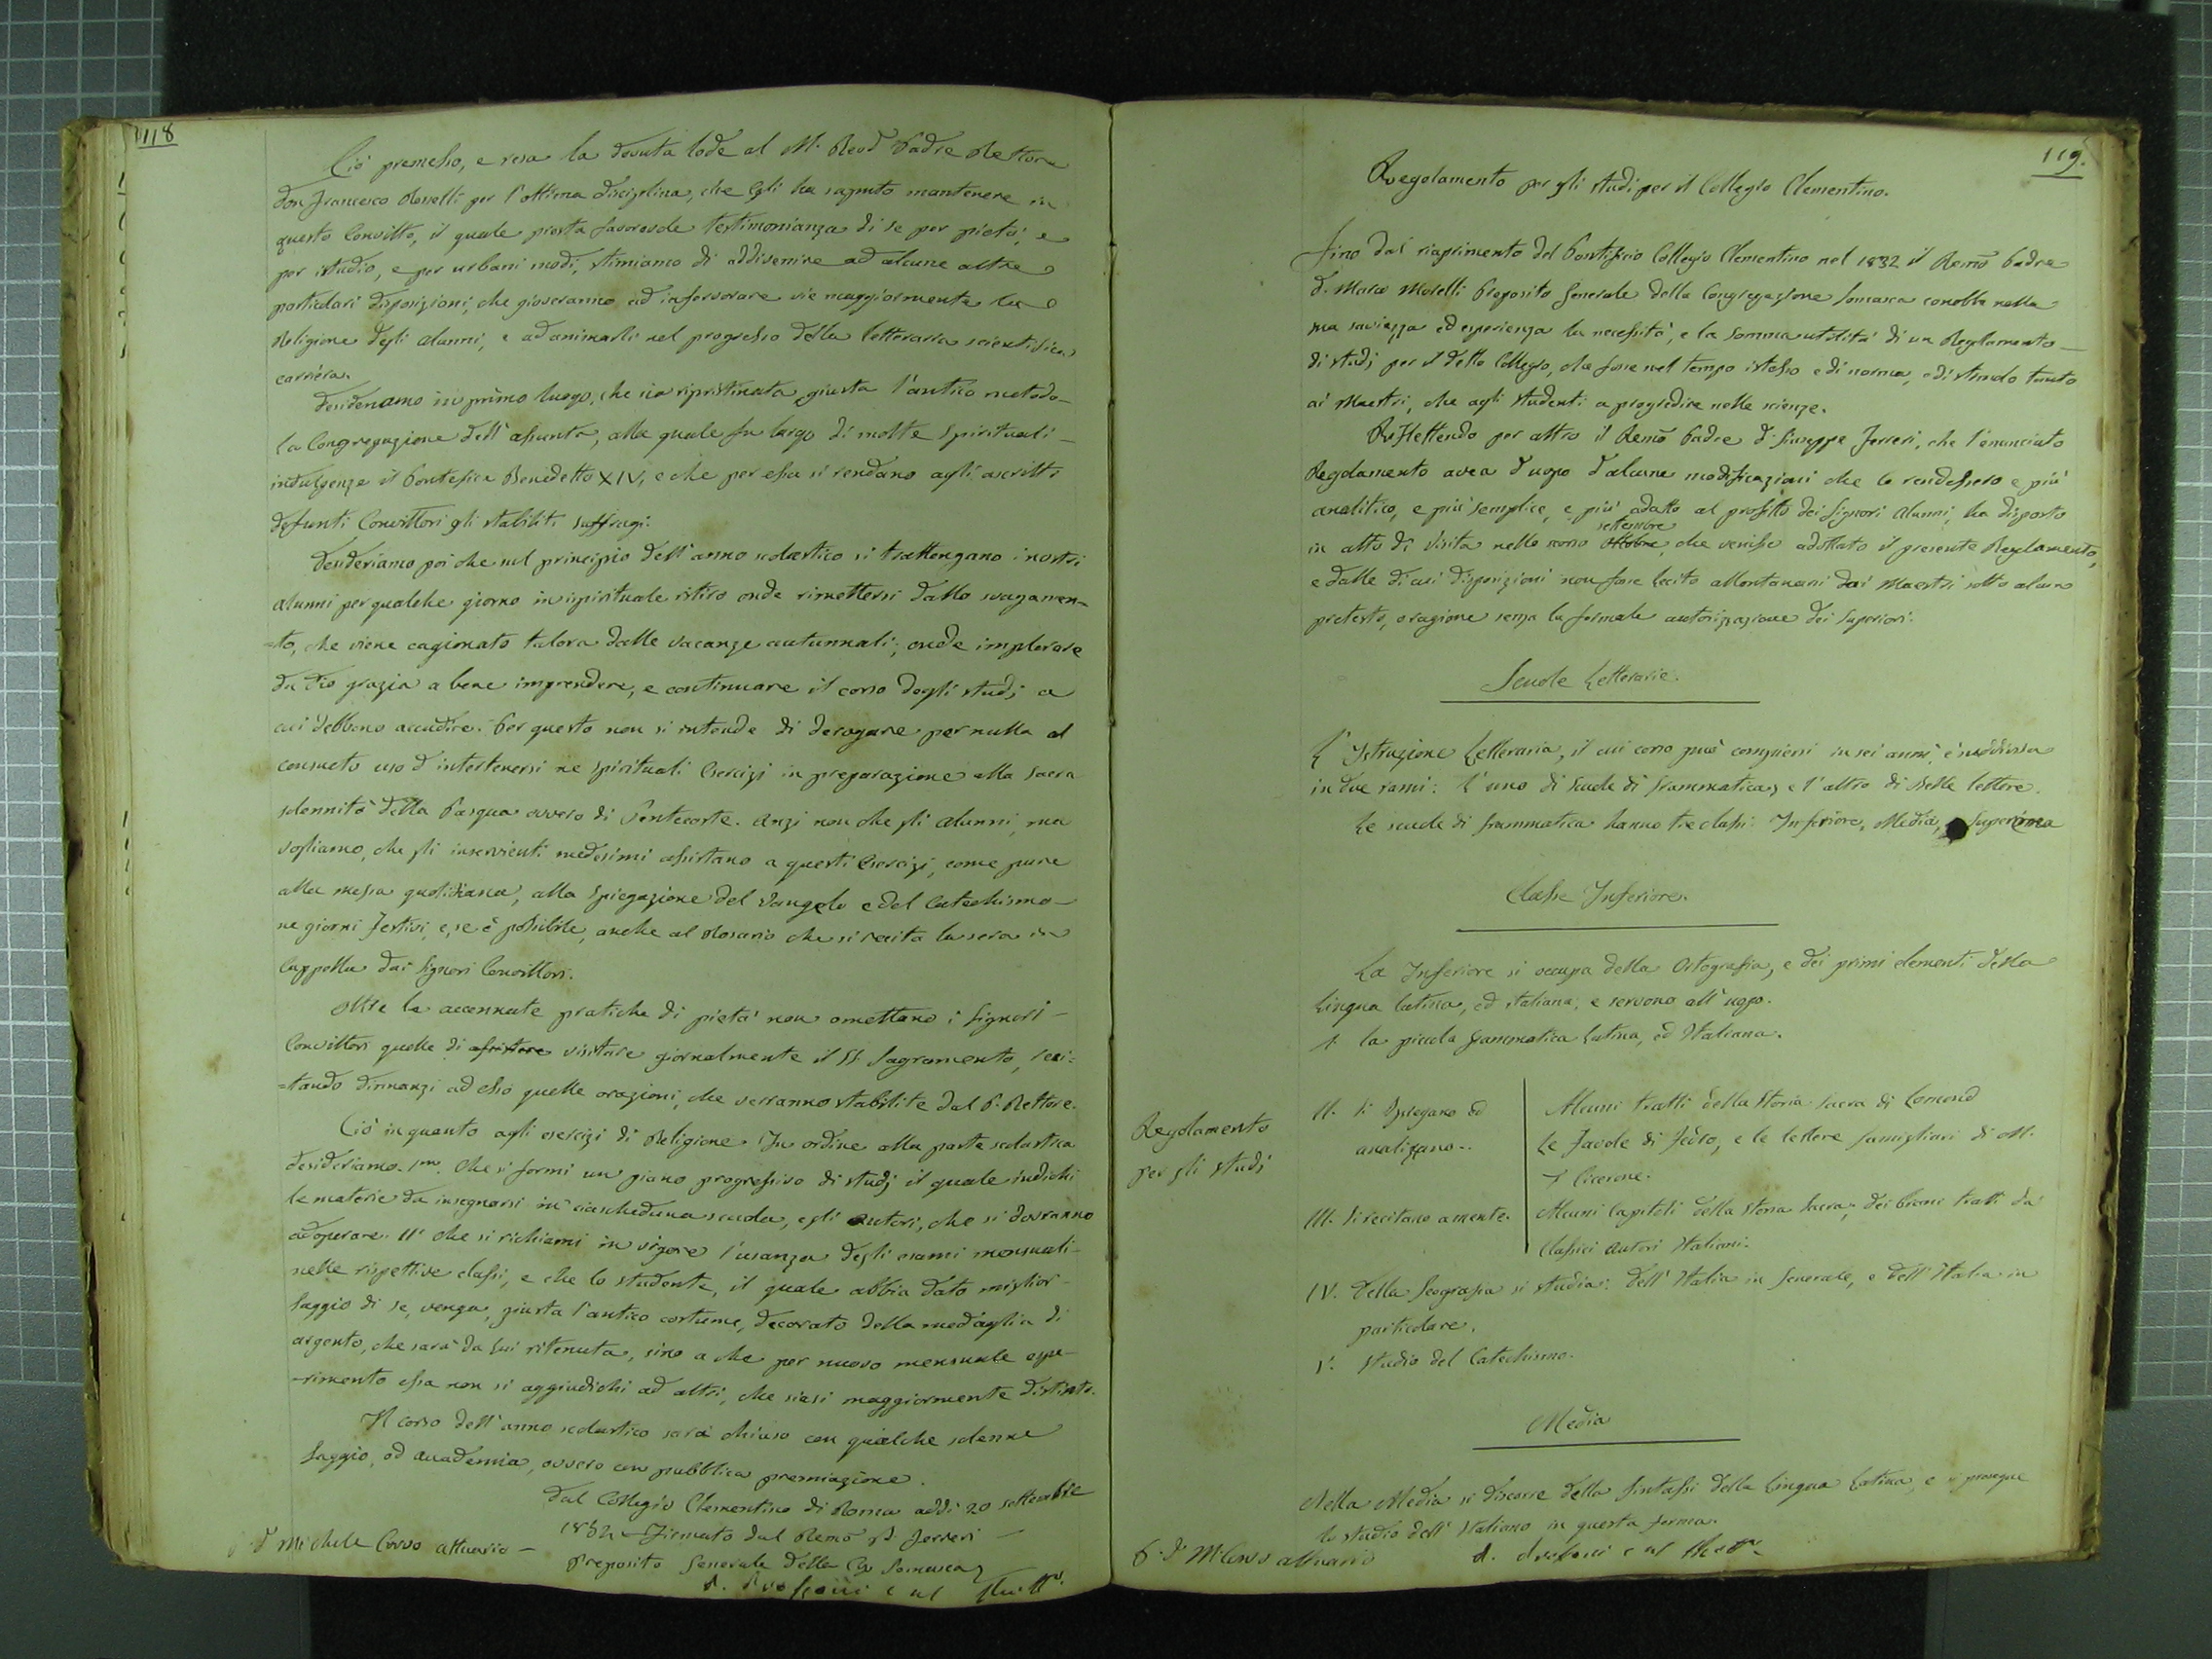 118
Ciò premesso, e resa la dovuta lode al M. Revd Padre Rettore
Don Francesco Rovelli per l'ottima disciplina, che Egli ha saputo mantenere in
questo Convitto, il quale presta favorevole testimonianza di se per pietà, e
per istudio, e per urbani modi, stimiamo di addivenire ad alcune altre
particolari disposizioni, che gioveranno ad infervorare vie maggiormente la
Religione degli alunni, e ad animarli nel progresso della letteraria scientifica
carriera.
Desideriamo in primo luogo, che sia ripristinata giusta l'antico metodo
la Congregazione dell'Assunta, alla quale fu largo di molte spirituali
indulgenze il Pontefice Benedetto XIV, e che per essa si rendano agli ascritti
defunti Convittori gli stabiliti suffragi.
Desideriamo poi che nel principio dell'anno scolastico si trattengano i nostri
alunni per qualche giorno in ispirituale ritiro onde rimettersi dallo svagamen=
=to, che viene cagionato talora dalle vacanze autunnali; onde implorare
da Dio grazia a bene imprendere, e continuare il corso degli studj a
cui debbono accudire. Per questo non si intende di derogare per nulla al
consueto uso d'intertenersi ne spirituali Esercizj in preparazione alla Sacra
solennità della Pasqua ovvero di Pentecoste. Anzi non che gli alunni, ma
vogliamo, che gli inservienti medesimi assistano a questi Esercizj, come pure
alla messa quotidiana, alla spiegazione del Vangelo e del Catechismo
ne giorni festivi, e, se è possibile, anche al Rosario che si recita la sera in
Cappella dai Signori Convittori.
Oltre le accennate pratiche di pietà non omettano i Signori
Convittori quelle di assistere visitare giornalmente il SS. Sagramento, reci=
=tando dinnanzi ad esso quelle orazioni, che verranno stabilite dal P. Rettore.
Ciò in quanto agli esercizj di Religione. In ordine alla parte scolastica
desideriamo. 1mo. Che si formi un piano progressivo di studj il quale indichi
le materie da insegnarsi in ciascheduna scuola, e gli autori, che si dovranno
adoperare. IIº che si richiami in vigore l'usanza degli esami mensuali
nelle rispettive classi, e che lo studente, il quale abbia dato miglior
saggio di se, venga, giusta l'antico costume, decorato della medaglia di
argento, che sarà da lui ritenuta, sino a che per nuovo mensuale espe-
-rimento essa non si aggiudichi ad altri, che siasi maggiormente distinto.
Il corso dell'anno scolastico sarà chiuso con qualche solenne
Saggio, od accademia, ovvero con pubblica premiazione.
Dal Collegio Clementino di Roma addì 20 settembre
Firmato dal Remo P. Ferreri
D Michele Corvo attuario
Preposito Generale della Cg Somasca
119.
Regolamento per gli studi per il Collegio Clementino.
Fino dal riaprimento del Pontificio Collegio Clementino nel 1832 il Remo Padre
D. Marco Morelli Preposito Generale della Congregazione Somasca conobbe nella
sua saviezza ed esperienza la necessità, e la somma utilità di un Regolamento
di studj per il detto Collegio, che fosse nel tempo istesso e di norma, e di stimolo tanto
ai Maestri, che agli studenti a progredire nelle scienze.
Riflettendo per altro il Remo Padre D. Giuseppe Ferreri, che l'enunciato
Regolamento avea d'uopo d'alcune modificazioni che lo rendessero e più
analitico, e più semplice, e più adatto al profitto dei Signori Alunni, ha disposto
settembre
in atto di Visita nello scorso Ottobre, che venisse adottato il presente Regolamento,
e dalle di cui disposizioni non fosse lecito allontanarsi dai Maestri sotto alcun
pretesto, o ragione senza la formale autorizzazione dei Superiori.
Scuole Letterarie.
L'Istruzione Letteraria, il cui corso può compiersi in sei anni, è suddivisa
in due rami: l'uno di Scuole di Grammatica, e l'altro di Belle lettere.
Le scuole di Grammatica hanno tre classi: Inferiore, Media, Suprema
Classe Inferiore.
La Inferiore si occupa della Ortografia, e dei primi elementi della
Lingua latina, ed italiana; e servono all'uopo.
I. La piccola Grammatica latina, ed Italiana.
II. Si spiegano ed
analizzano..
Alcuni tratti della Storia Sacra di Lomond
Le Favole di Fedro, e le lettere famigliari di M.
T Cicerone.
III. Si recitano a mente.
Alcuni Capitoli della Storia Sacra, dei brani tratti da
Classici autori Italiani.
IV. Della Geografia si studia: dell'Italia in Generale, e dell'Italia in
particolare.
V. Studio del Catechismo.
Regolamento
per gli studj
Media
Nella Media si discorre della Sintassi della lingua Latina, e si prosegue
lo studio dell'Italiano in questa forma.
P. D M. Corvo attuario